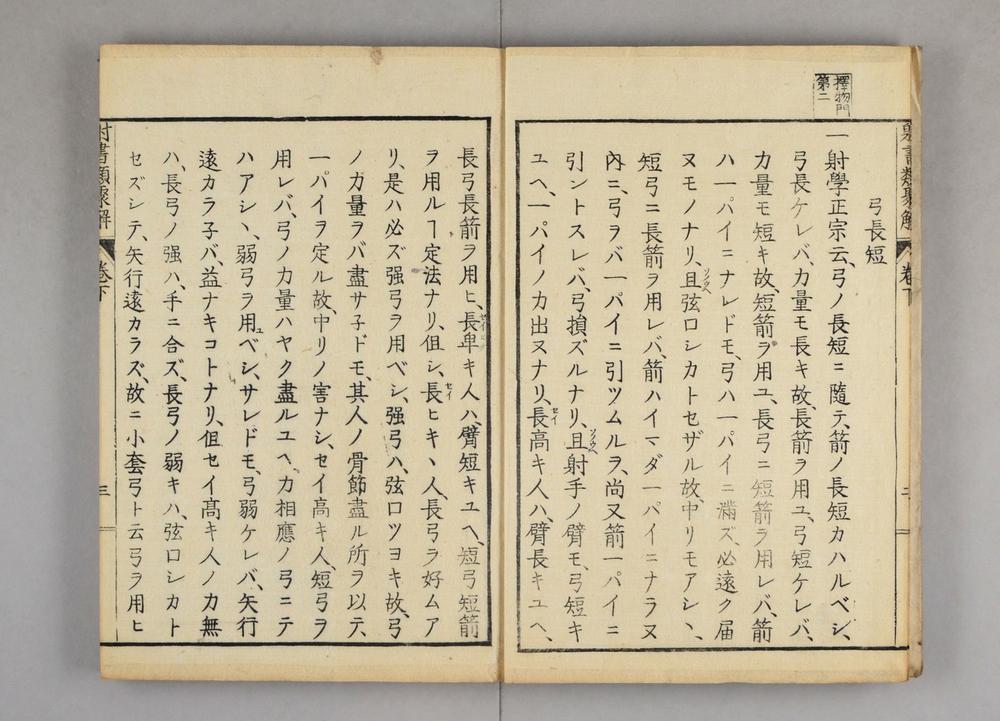 擇物門
第二
弓長短
一射學正宗云、弓ノ長短ニ隨テ、箭ノ長短カハルベシ、
弓長ケレバ、力量モ長キ故、長箭ヲ用ユ、弓短ケレバ、
力量モ短キ故、短箭ヲ用ユ、長弓ニ短箭ヲ用レバ、箭
ハ一パイニナレドモ、弓ハ一パイニ滿ズ、必遠ク届
ヌモノナリ、且ソノウヘ弦口シカトセザル故、中リモアシヽ、
短弓ニ長箭ヲ用レバ、箭ハイマダ一パイニナラヌ
內ニ、弓ヲバ一パイニ引ツムルヲ、尚又箭一パイニ
引ントスレバ、弓損ズルナリ、且ソノウヘ射手ノ臂モ、弓短キ
ユヘ、一パイノ力出ヌナリ、長セイ高キ人ハ、臂長キユヘ、
射書類聚解 卷下 二
射書類聚解 卷下 三
長弓長箭ヲ用ヒ、長セイ卑キ人ハ、臂短キユヘ、短弓短箭
ヲ用ルヿ定法ナリ、但シ、長セイヒキヽ人、長弓ヲ好ムア
リ、是ハ必ズ强弓ヲ用ベシ、强弓ハ、弦口ツヨキ故、弓
ノ力量ヲバ盡サ子ドモ、其人ノ骨節盡ル所ヲ以テ、
一パイヲ定ル故、中リノ害ナシ、セイ高キ人、短弓ヲ
用レバ、弓ノ力量ハヤク盡ルユヘ、力相應ノ弓ニテ
ハアシヽ、弱弓ヲ用ユベシ、サレドモ、弓弱ケレバ、矢行
遠カラ子バ、益ナキコトナリ、但セイ髙キ人ノ力無
ハ、長弓ノ强ハ、手ニ合ズ、長弓ノ弱キハ、弦口シカト
セズシテ、矢行遠カラズ、故ニ小套弓ト云弓ヲ用ヒ